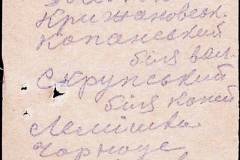 Крижановськ.
Копанський
біля вал.
Скрупський
біля коней
Лемішка
Чорноус